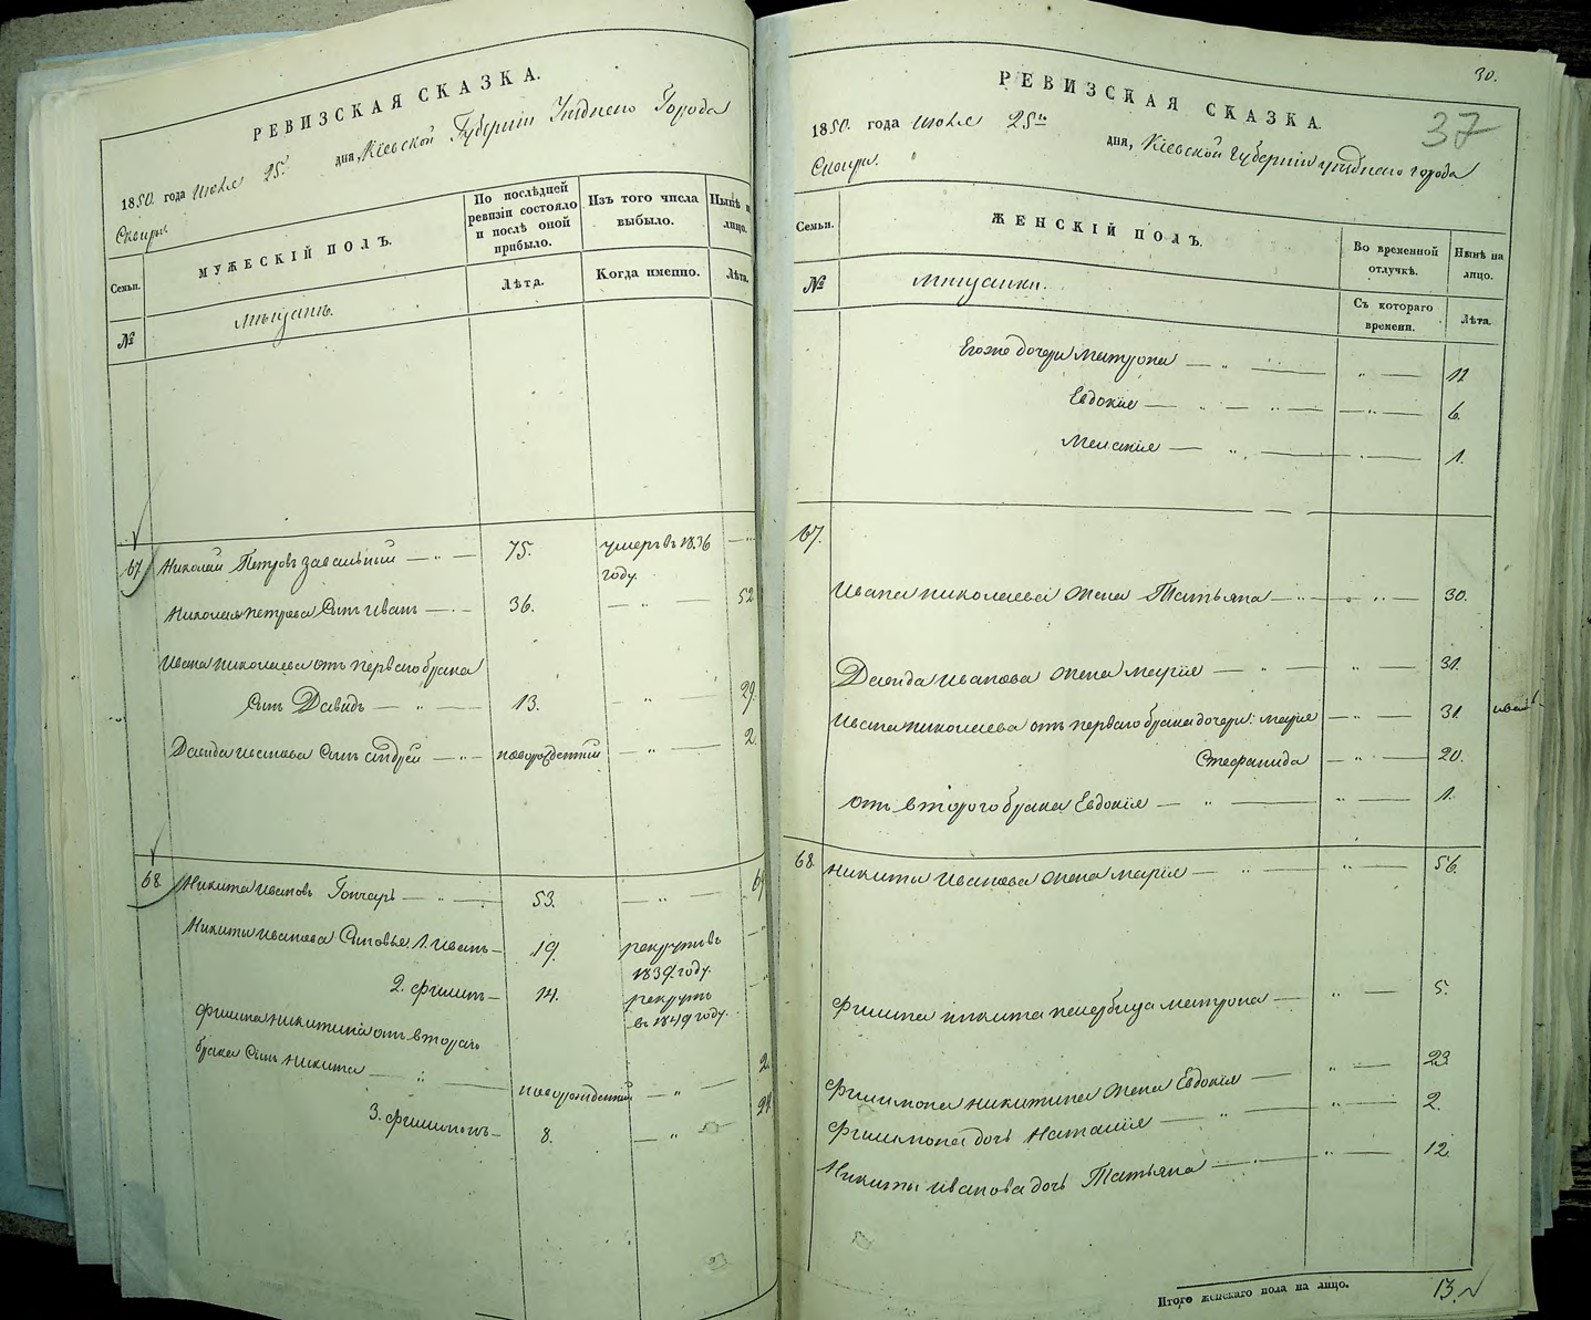 РЕВИЗСКАЯ СКАЗКА.
1850. года Июля 25. дня, Кіевской Губерніи Уѣзднаго Города
Сквиры.
Семьи.
МУЖЕСКІЙ ПОЛЪ.
По послѣдней ревизіи состояло и послѣ оной прибыло.
Изъ того числа выбыло.
Нынѣ на лицо.
№
мѣщанъ.
Лѣта.
Когда именно.
Лѣта.
67 Николай Петровъ — " — 75. умеръ въ 1836 году. — "
Николая Петрова Сынъ Иванъ — " — 36. — " — 52
Ивана Николаева отъ перваго брака
Сынъ Давидъ — " — 13. — " — 29.
Давида Иванова Сынъ Андрей — " — новорожденный — " — 2.
68 Никита Ивановъ Гончаръ — " — 53. — " — 69
Никиты Иванова Сыновья: 1. Иванъ — 19. рекрутъ въ 1839. году. — "
2. Филипъ — 14. рекрутъ въ 1849 году. — "
Филипа Никитина отъ втораго
брака Сынъ Никита — " — новорожденный — " — 2.
3. Филимонъ — 8. — " — 24
РЕВИЗСКАЯ СКАЗКА.
30.
37
1850. года Июля 25го дня, Кіевской Губерніи уѣзднаго города
Сквиры.
Семьи.
ЖЕНСКІЙ ПОЛЪ.
Во временной отлучкѣ.
Нынѣ на лицо.
№
мѣщанки.
Съ котораго времени.
Лѣта.
Егоже дочери Матрона — " — " — 11
Евдокія — " — " — " — 6.
Меланія — " — " — 1.
67.
Ивана Николаева жена Татьяна — " — " — 30.
Давида Иванова жена Марія — " — " — 31.
Ивана Николаева отъ перваго брака дочери: Марія — " — 31.
Стефанида — " — 20.
отъ втораго брака Евдокія — " — " — 1.
68. Никиты Иванова жена Марія — " — " — 56.
Филипа Никитина Матрона — " — 5.
Филимона Никитина жена Евдокія — " — 23.
Филимона дочь Наталія — " — " — 2.
Никиты Иванова дочь Татьяна — " — 12.
Итого женскаго пола на лицо. 13.